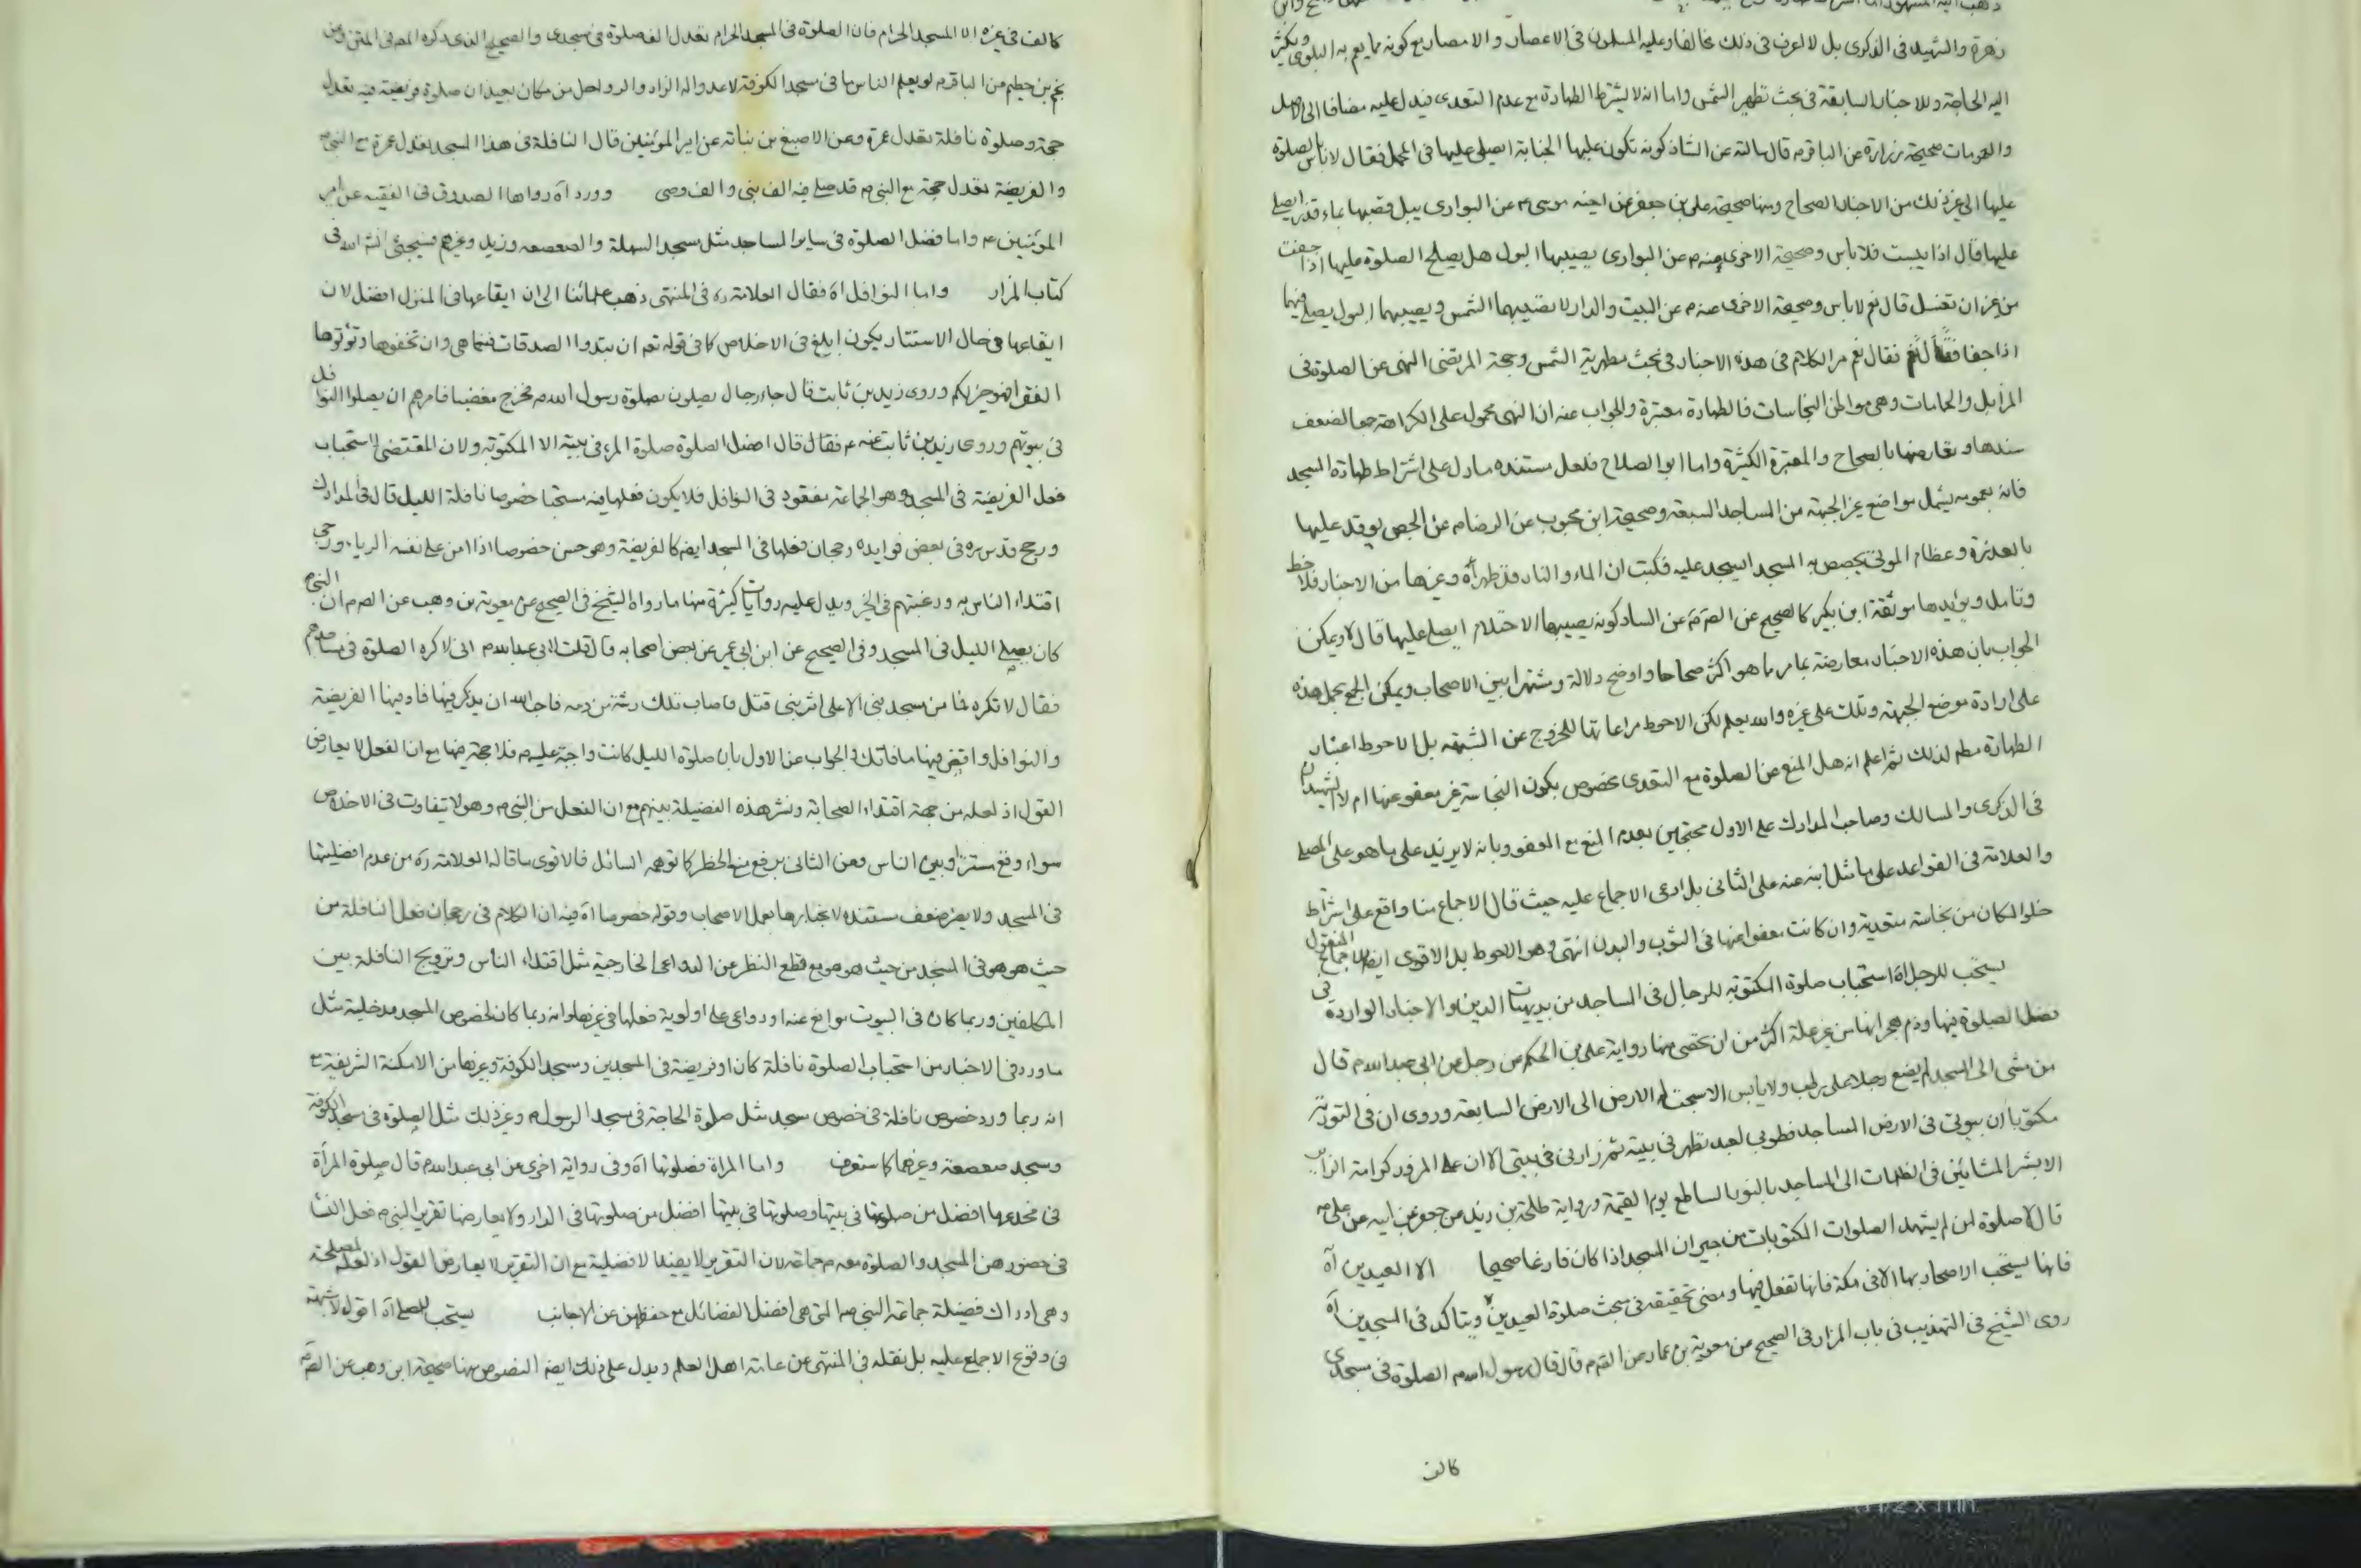 زهرة والشهيد في الذكرى بل لا اعرف في ذلك مخالفا وعليه المسلمون في الاعصار والامصار مع كونه مما يعم به البلوى ويكثر
اليه الحاجة وللاخبار السابقة في بحث تطهير الشمس واما انه لا يشترط الطهارة مع عدم التعدى فيدل عليه مضافا الى الاصل
والعمومات صحيحة زرارة عن الباقر م قال سالته عن الشاذكونه تكون عليها الجنابة ايصلى عليها في المحمل فقال لا باس بالصلوة
عليها الى غير ذلك من الاخبار الصحاح ومنها صحيحة على بن جعفر عن اخيه موسى م عن البوارى يبل قصبها بماء قذر ايصلى
عليها قال اذا يبست فلا باس وصحيحة الاخرى عنه م عن البوارى يصيبها البول هل يصلح الصلوة عليها اذا جفت
من غير ان تغسل قال نعم لا باس وصحيحة الاخرى عنه م عن البيت والدار لا تصيبهما الشمس ويصيبهما البول يصلى فيهما
اذا جفا فقال نعم مر الكلام في هذه الاخبار في بحث مطهرية الشمس وحجة المرتضى النهى عن الصلوة في
المزابل والحمامات وهى مواطن النجاسات فالطهارة معتبرة والجواب عنه ان النهى محمول على الكراهة جمعا لضعف
سندها وتعارضها بالصحاح والمعتبرة الكثيرة واما ابو الصلاح فلعل مستنده ما دل على اشتراط طهارة المسجد
فانه بعمومه يشمل مواضع غير الجبهة من المساجد السبعة وصحيحة ابن محبوب عن الرضا م عن الجص يوقد عليها
بالعذرة وعظام الموتى يجصص به المسجد ايسجد عليه فكتب ان الماء والنار قد طهراه وغيرها من الاخبار فلاحظ
وتامل ويؤيدها موثقة ابن بكير كالصحيح عن الصم عن الشاذكونه يصيبها الاحتلام ايصلى عليها قال لا ويمكن
الجواب بان هذه الاخبار معارضة بما مر ما هو اكثر صحاحا واوضح دلالة ومشتهرا بين الاصحاب ويمكن الجمع بحمل هذه
على ارادة موضع الجبهة وتلك على غيره والله يعلم لكن الاحوط مراعاتها للخروج عن الشبهة بل الاحوط اعتبار
الطهارة مطم لذلك ثم اعلم انه هل المنع عن الصلوة مع التعدى مخصوص بكون النجاسة غير معفو عنها ام لا الشهيدان
في الذكرى والمسالك وصاحب المدارك على الاول محتجين بعدم المنع مع العفو وبانه لا يزيد على ما هو على المصلى
والعلامة في القواعد على ما نقل ابنه عنه على الثانى بل ادعى الاجماع عليه حيث قال الاجماع منا واقع على اشتراط
خلو المكان من نجاسة متعدية وان كانت معفوا عنها في الثوب والبدن انتهى وهو الاحوط بل الاقوى ايضا للاجماع المنقول
يستحب للرجل اه استحباب صلوة المكتوبة للرجال في المساجد من بديهيات الدين والاخبار الواردة في
فضل الصلوة فيها وذم هجرانها من غير علة اكثر من ان تحصى منها رواية على بن الحكم عن رجل عن ابى عبد الله م قال
من مشى الى المسجد لم يضع رجلا على رطب ولا يابس الا سبحت له الارض الى الارض السابعة وروى ان في التورية
مكتوبا ان بيوتى في الارض المساجد فطوبى لعبد تطهر في بيته ثم زارنى في بيتى الا ان على المزور كرامة الزائر
الا بشر المشائين في الظلمات الى المساجد بالنور الساطع يوم القيمة ورواية طلحة بن زيد عن جعفر عن ابيه عن على م
قال لا صلوة لمن لم يشهد الصلوات المكتوبات من جيران المسجد اذا كان فارغا صحيحا الا العيدين اه
فانها يستحب الاصحار بها الا في مكة فانها تفعل فيها ومضى تحقيقه في بحث صلوة العيدين ويتاكد في المسجدين اه
روى الشيخ في التهذيب في باب المزار في الصحيح عن معوية بن عمار عن الصم قال قال رسول الله ص الصلوة في مسجدى
كالف
كالف في غيره الا المسجد الحرام فان الصلوة في المسجد الحرام تعدل الف صلوة في مسجدى والصحيح الذى ذكره المص في المتن وعن
نجم بن حطيم عن الباقر م لو يعلم الناس ما في مسجد الكوفة لاعدوا له الزاد والرواحل من مكان بعيد ان صلوة فريضة فيه تعدل
حجة وصلوة نافلة تعدل عمرة وعن الاصبغ بن نباتة عن امير المؤمنين قال النافلة في هذا المسجد تعدل عمرة مع النبى ص
والفريضة تعدل حجة مع النبى م قد صلى فيه الف نبى والف وصى وورد اه رواها الصدوق في الفقيه عن امير
المؤمنين م واما فضل الصلوة في ساير المساجد مثل مسجد السهلة والصعصعه وزيد وغيرهم فسيجئ انش الله في
كتاب المزار واما النوافل اه فقال العلامة ره في المنتهى ذهب علمائنا الى ان ايقاعها في المنزل افضل لان
ايقاعها في حال الاستتار يكون ابلغ في الاخلاص كما في قوله تعم ان تبدوا الصدقات فنعما هى وان تخفوها وتؤتوها
الفقراء فهو خير لكم وروى زيد بن ثابت قال جاء رجال يصلون بصلوة رسول الله م فخرج مغضبا فامرهم ان يصلوا النوافل
في بيوتهم وروى زيد بن ثابت عنه م فقال قال افضل الصلوة صلوة المرء في بيته الا المكتوبة ولان المقتضى لاستحباب
فعل الفريضة في المسجد وهو الجماعة مفقود في النوافل فلا يكون فعلها فيه مستحبا خصوصا نافلة الليل قال في المدارك
ورجح قدس سره في بعض فوايده رجحان فعلها في المسجد ايضا كالفريضة وهو حسن خصوصا اذا امن على نفسه الرياء ورجى
اقتداء الناس به ورغبتهم في الخير ويدل عليه روايات كثيرة منها ما رواه الشيخ في الصحيح عن معوية بن وهب عن الصم ان النبى م
كان يصلى الليل في المسجد وفي الصحيح عن ابن ابى عمير عن بعض اصحابه قال قلت لابى عبد الله م انى لاكره الصلوة في مساجدهم
فقال لا تكره فما من مسجد بنى الا على اثر نبى قتل فاصاب تلك رشة من دمه فاحب الله ان يذكر فيها فاد فيها الفريضة
والنوافل واقض فيها ما فاتك والجواب عن الاول بان صلوة الليل كانت واجبة عليه م فلا حجة فيها مع ان الفعل لا يعارض
القول اذ لعله من جهة اقتداء الصحابة ونشر هذه الفضيلة بينهم مع ان الفعل من النبى م وهو لا يتفاوت في الاخلاص
سواء وقع مستترا وبين الناس وعن الثانى برفع منع الحظر كما توهمه السائل فالاقوى ما قاله العلامة ره من عدم افضليتها
في المسجد ولا يضر ضعف مستنده لانجبارها بعمل الاصحاب وقوله خصوصا اه فيه ان الكلام في رجحان فعل النافلة من
حيث هو هو في المسجد من حيث هو هو مع قطع النظر عن الدواعى الخارجية مثل اقتداء الناس وترويج النافلة بين
المكلفين وربما كان في البيوت موانع عنه او دواعى على اولوية فعلها في غيرها وانه ربما كان لخصوص المسجد مدخلية مثل
ما ورد في الاخبار من استحباب الصلوة نافلة كان او فريضة في المسجدين ومسجد الكوفة وغيرها من الامكنة الشريفة مع
انه ربما ورد خصوص نافلة في خصوص مسجد مثل صلوة الحاجة في مسجد الرسول م وغير ذلك مثل الصلوة في مسجد الكوفة
ومسجد صعصعة وغيرهما كما ستعرف واما المراة فصلوتها اه وفي رواية اخرى عن ابى عبد الله م قال صلوة المرأة
في مخدعها افضل من صلوتها في بيتها وصلوتها في بيتها افضل من صلوتها في الدار ولا يعارضها تقرير النبى م فعل النساء
في حضورهن المسجد والصلوة معه م جماعة لان التقرير لا يفيد الافضلية مع ان التقرير لا يعارض القول اذ لعله لمصلحة
وهى ادراك فضيلة جماعة النبى ص التى هى افضل الفضائل مع حفظهن عن الاجانب يستحب للمصلى اه اقول لا شبهة
في وقوع الاجماع عليه بل نقله في المنتهى عن عامة اهل العلم ويدل على ذلك ايضا النصوص منها صحيحة ابن وهب عن الصم